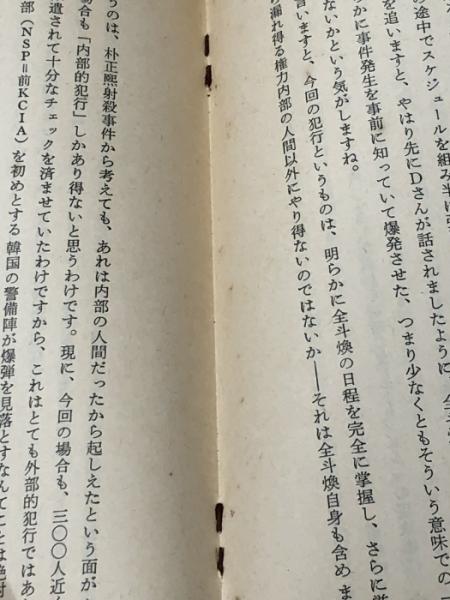 の途中でスケジュールを組み
を追いますと、やはり先にDさんが話されましたように、全
らかに事件発生を事前に知っていて爆発させた、つまり少なくともそういう意味での「
ないかという気がしますね。
言いますと、今回の犯行というものは、明らかに全斗煥の日程を完全に掌握し、さらに
漏れ得る権力内部の人間以外にやり得ないのではないか――それは全斗煥自身も含めま
うのは、朴正熙射殺事件から考えても、あれは内部の人間だったから起しえたという面が
場合も「内部的犯行」しかあり得ないと思うわけです。現に、今回の場合も、三〇〇人近
遣されて十分なチェックを済ませていたわけですから、これはとても外部的犯行ではあ
部（NSP＝前KCIA）を初めとする韓国の警備陣が爆弾を見落とすなんてことは絶対